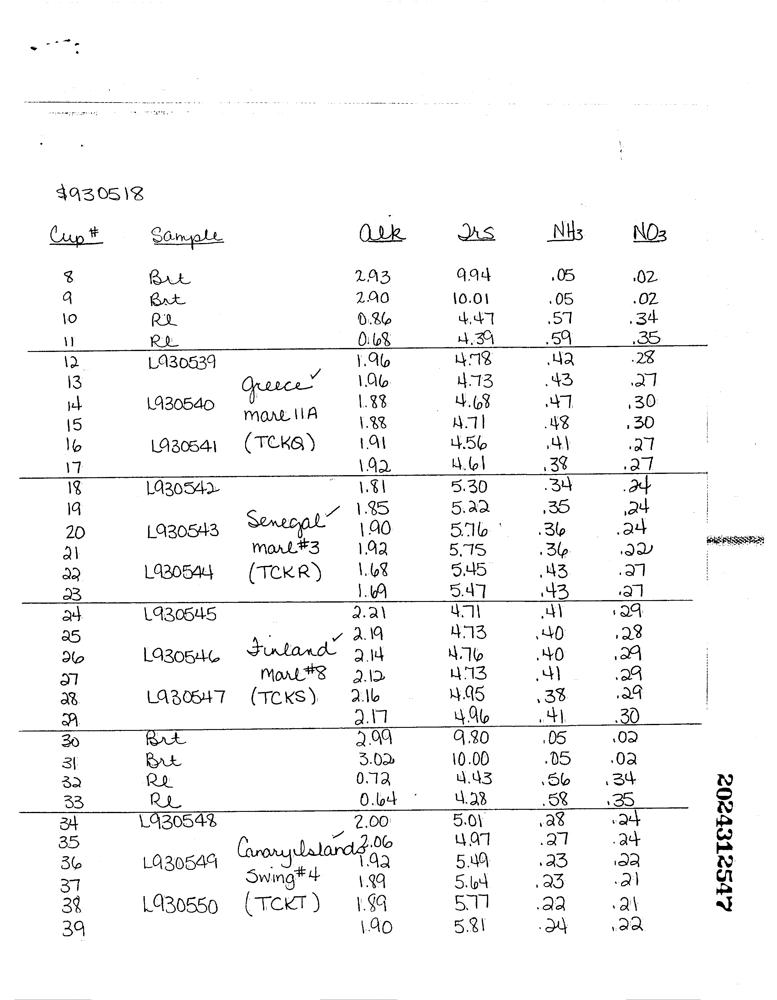 $930518
Cup # Sample Alk Trs NH3 NO3
8 Brt 2.93 9.94 .05 .02
9 Brt 2.90 10.01 .05 .02
10 Rl 0.86 4.47 .57 .34
11 Rl 0.68 4.39 .59 .35
12 L930539 1.96 4.78 .42 .28
13 Greece ✓ 1.96 4.73 .43 .27
14 L930540 1.88 4.68 .47 .30
15 Marl 11A 1.88 4.71 .48 .30
16 L930541 (TCKQ) 1.91 4.56 .41 .27
17 1.92 4.61 .38 .27
18 L930542 1.81 5.30 .34 .24
19 1.85 5.22 .35 .24
20 L930543 Senegal ✓ 1.90 5.76 .36 .24
21 Marl #3 1.92 5.75 .36 .22
22 L930544 (TCKR) 1.68 5.45 .43 .27
23 1.69 5.47 .43 .27
24 L930545 2.21 4.71 .41 .29
25 2.19 4.73 .40 .28
26 L930546 Finland ✓ 2.14 4.76 .40 .29
27 Marl #8 2.12 4.73 .41 .29
28 L930547 (TCKS) 2.16 4.95 .38 .29
29 2.17 4.96 .41 .30
30 Brt 2.99 9.80 .05 .02
31 Brt 3.02 10.00 .05 .02
32 Rl 0.72 4.43 .56 .34
33 Rl 0.64 4.28 .58 .35
34 L930548 2.00 5.01 .28 .24
35 2.06 4.97 .27 .24
36 L930549 Canary Islands ✓ 1.92 5.49 .23 .22
37 Swing #4 1.89 5.64 .23 .21
38 L930550 (TCKT) 1.89 5.77 .22 .21
39 1.90 5.81 .24 .22
2024312547